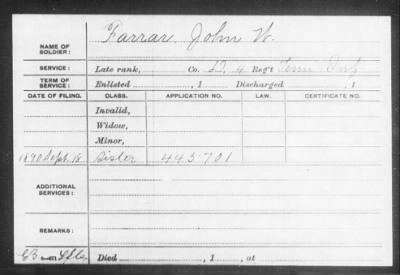 NAME OF SOLDIER: Farrar, John W.
SERVICE: Late rank, Co. D, 4 Reg't Tenn Inf
TERM OF SERVICE: Enlisted , 1 Discharged , 1
DATE OF FILING. CLASS. APPLICATION NO. LAW. CERTIFICATE NO.
Invalid,
Widow,
Minor,
1890 Sept. 18. Sister 445701
ADDITIONAL SERVICES:
REMARKS:
Died , 1 , at